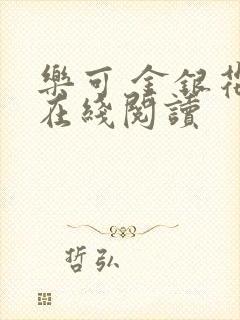 樂可 金銀花
在綫閱讀
哲弘